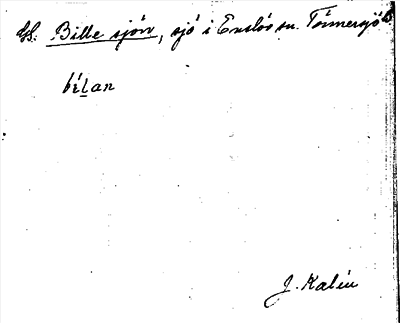 Hl. Bille sjön, sjö i Enslöv sn. Tönnersjö
bɩ́lan
J. Kalén